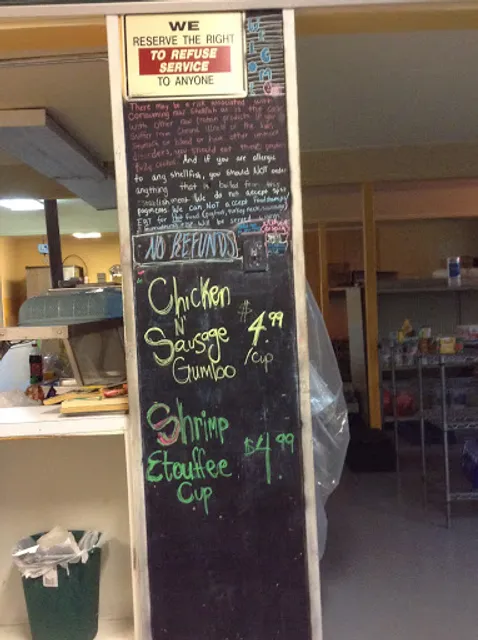 WE
RESERVE THE RIGHT
TO REFUSE
SERVICE
TO ANYONE
WELCOME
There may be a risk associated with
consuming raw shellfish as is the case
with other raw protein products. If you
suffer from chronic illness of the liver,
stomach or blood or have other immune
disorders, you should eat these
fully cooked. And if you are allergic
to any shellfish, you should NOT order
anything that is boiled from this
establishment. We do not accept
payments. We can NOT accept food stamps
EBT for Hot food
will be served
NO REFUNDS
Chicken
N'
Sausage
Gumbo
$4.99
/cup
Shrimp
Etouffee
Cup
$4.99